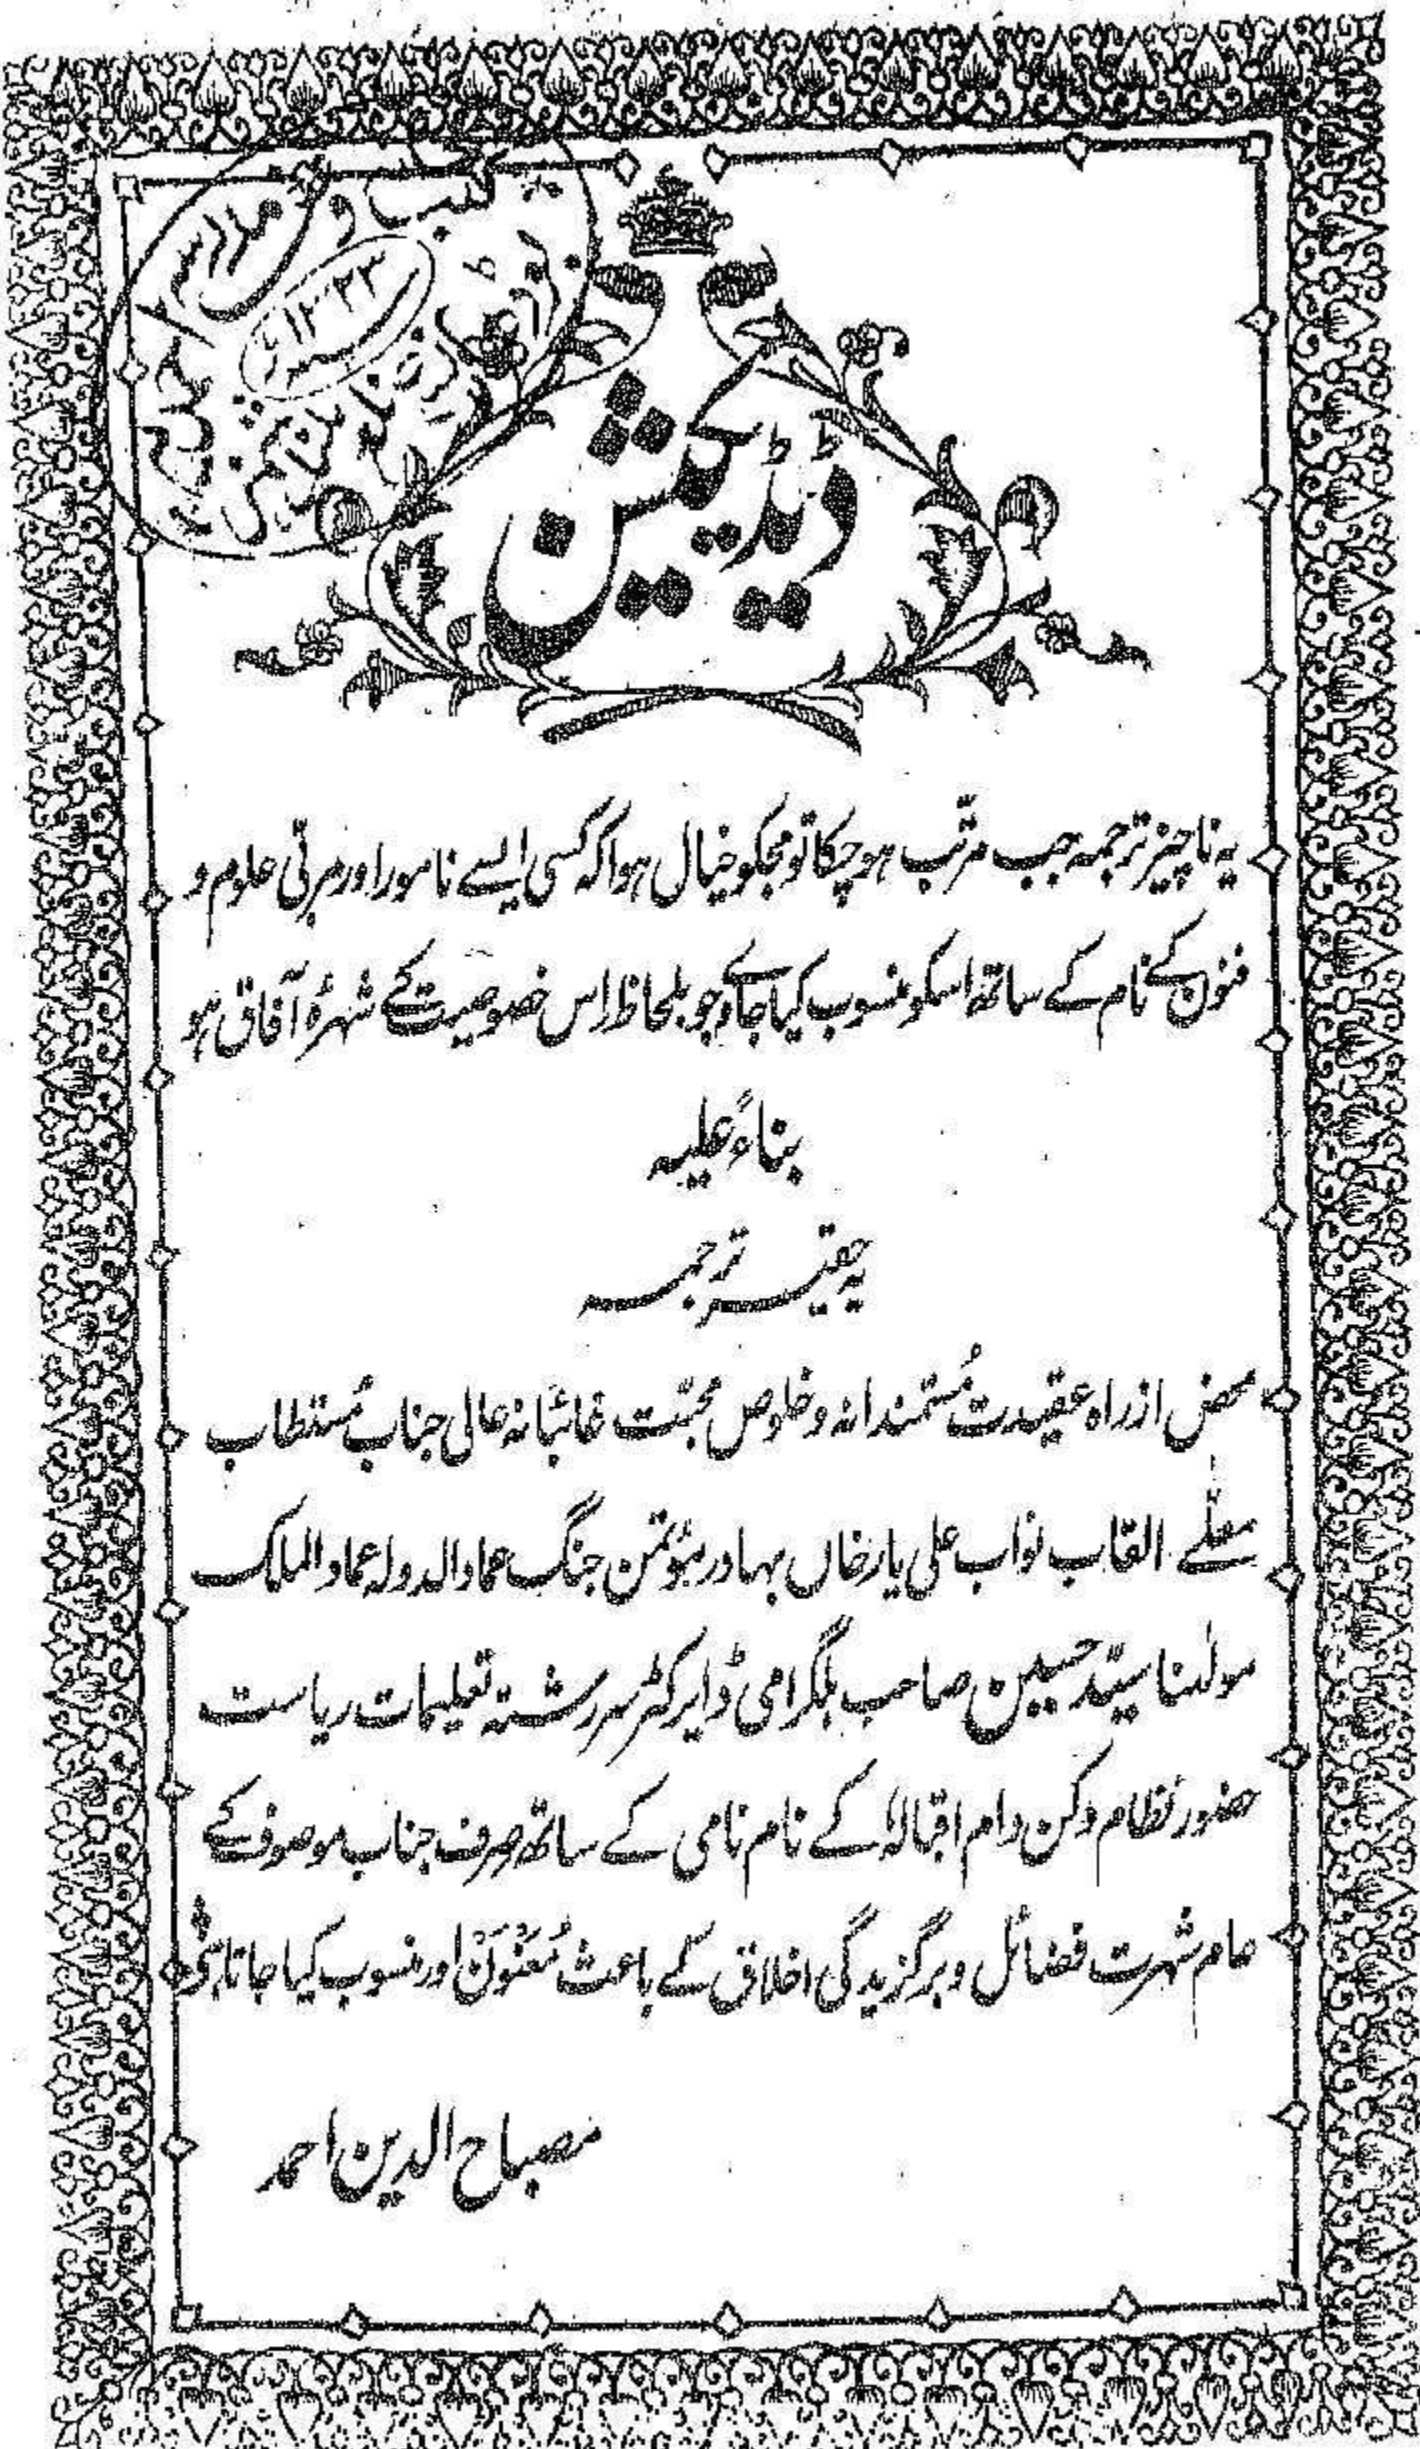 ڈیڈیکیشن
یہ ناچیز ترجمہ جب مرتّب ہو چکا تو مجکو خیال ہوا کہ کسی ایسے نامور اور مربّی علوم و
فنون کے نام کے ساتھ اسکو منسوب کیا جائے جو بلحاظ اس خصوصیت کے شہرۂ آفاق ہو
بناءً علیہ
یہ حقیر ترجمہ
محض از راہ عقیدت مُستمندانہ و خلوص محبّت غائبانہ عالی جناب مُستطاب
معلّےٰ القاب نواب علی یار خاں بہادر مؤتمن جنگ عماد الدولہ عماد الملک
مولٰنا سیّد حسین صاحب بلگرامی ڈایرکٹر سررشتہ تعلیمات ریاست
حضور نظام دکن دام اقبالہٗ کے نام نامی کے ساتھ صرف جناب موصوف کے
عام شہرت فضائل و برگزیدگی اخلاق کے باعث مُعَنْوَنْ اور منسوب کیا جاتا ہی
مصباح الدین احمد
۱۳۲۳